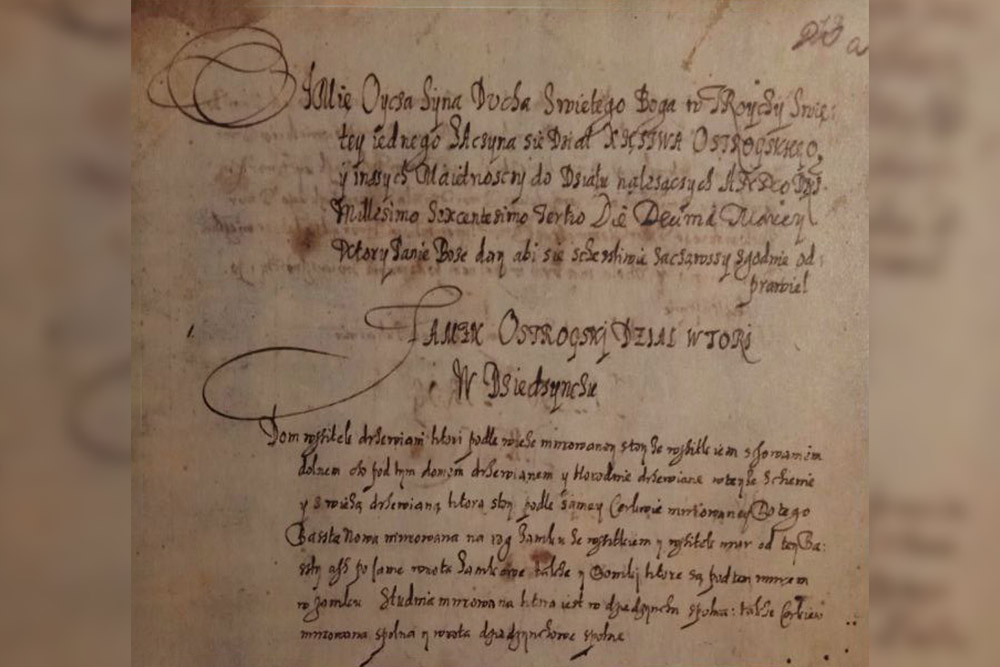 Imię Oycsa Syna Dvcha Swietego Boga w TRoychy Swię:
tey iednego SAcsyna sie Dział XKSTWA OSTROGSKIEGO,
y inssych Maiętnoscÿ do Działu nalezsących
Millesimo Sexcentesimo Tertio Die Decima
Ktory Panie Boze day abi sie sczesliwie zgodnie od
prawiel
SAMEK OSTROGSKJ DZIAŁ WTORJ
W Dsiedsyncsu
Dom wssitek drsewiani ktori podle wieze mvrowaney stoy ze wssitkiem schowaniem
dolnem czo pod tym domem drsewianem y Horodnie drsewiane
y z wiezą drsewianą ktora stoy podle samey Cerkwie mvrowaney Po tego
Basta Nowa mvrowana na rog Samku ze wssitkiem y wssitek mvr od tey Ba:
sty asz po same wrota Samkowe takze y ktore są pod tem mvrem
w Zamku Studnia mvrowana ktora iest w dziedzyncu spolna: takze Cerkiew
mvrowana spolna y wrota dziedzyncowe spolne